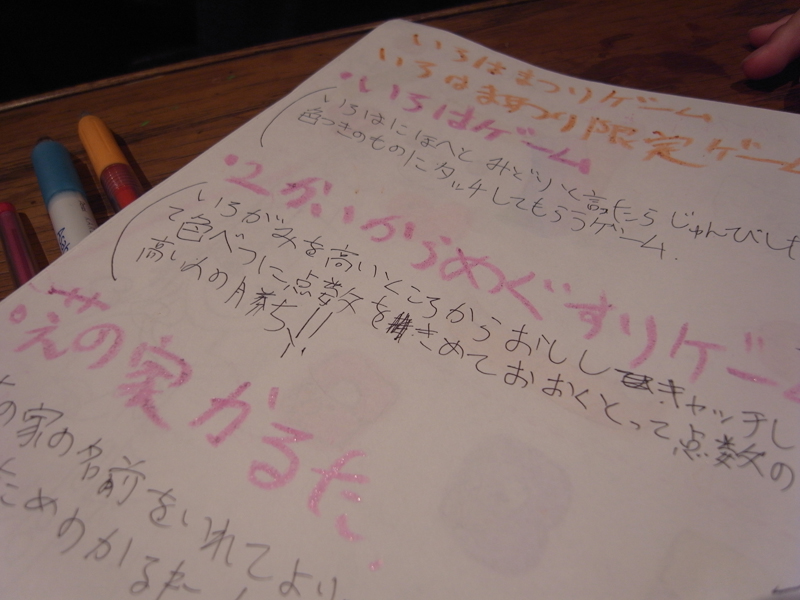 いろはまつりゲーム
いろはまつり限定ゲーム
・いろはゲーム
(いろはにほへと みどり と言ったら じゅんびした
色つきのものにタッチしてもらうゲーム.
・2かいからめぐすりゲーム
(いろがみを高いところからおとし キャッチし
て色べつに点数をきめて おおくとって点数の
高い人の勝ち!!
の実かるた.
の家の名前をいれてより
ためのかるた